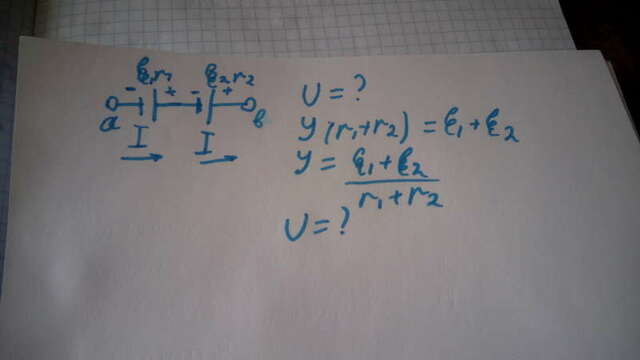 ℰ₁r₁ ℰ₂r₂
- + - +
a в
I I
U = ?
У(r₁+r₂) = ℰ₁+ℰ₂
У = ℰ₁+ℰ₂
r₁+r₂
U = ?